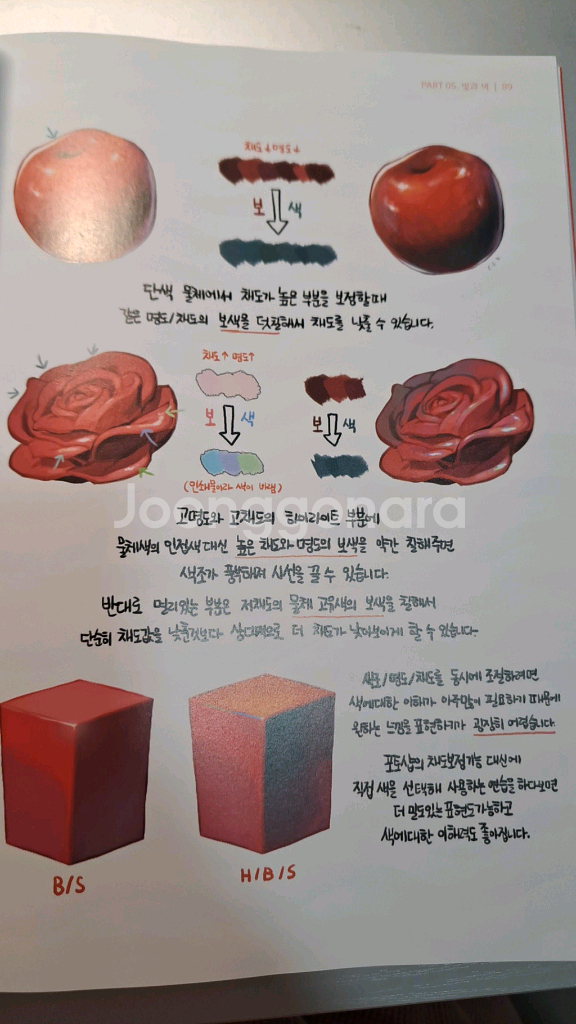 PART 05. 빛과 색 | 89
채도↓ 명도↓
보 색
단색 물체에서 채도가 높은 부분을 보정할때
같은 명도/채도의 보색을 덧칠해서 채도를 낮출 수 있습니다.
채도↑ 명도↑
보 색
보 색
(인쇄물이라 색이 바램)
고명도와 고채도의 하이라이트 부분에
물체색의 인접색 대신 높은 채도와 명도의 보색을 약간 칠해주면
색조가 풍부해져 시선을 끌 수 있습니다.
반대로 멀리있는 부분은 저채도의 물체 고유색의 보색을 칠해서
단순히 채도값을 낮춘것보다 상대적으로 더 채도가 낮아보이게 할 수 있습니다.
색조/명도/채도를 동시에 조절하려면
색에대한 이해가 아주많이 필요하기 때문에
원하는 느낌을 표현하기가 굉장히 어렵습니다.
포토샵의 채도보정기능 대신에
직접 색을 선택해 사용하는 연습을 하다보면
더 밀도있는 표현도가능하고
색에대한 이해력도 좋아집니다.
B/S
H/B/S
Joonggonara